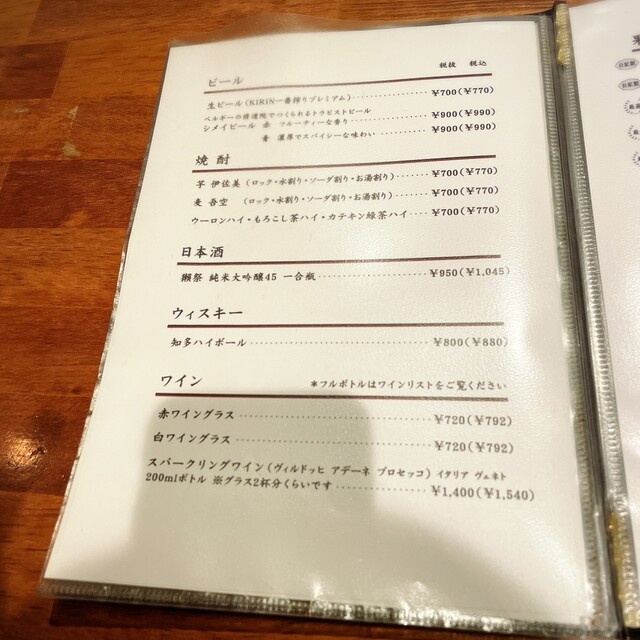 税抜 税込
ビール
生ビール(KIRIN一番搾りプレミアム)‥‥‥‥‥¥700(¥770)
ベルギーの修道院でつくられるトラピストビール
シメイビール 赤 フルーティーな香り‥‥‥‥‥¥900(¥990)
青 濃厚でスパイシーな味わい‥‥‥‥‥¥900(¥990)
焼酎
芋 伊佐美(ロック・水割り・ソーダ割り・お湯割り)‥‥‥¥700(¥770)
麦 吾空 (ロック・水割り・ソーダ割り・お湯割り)‥‥‥¥700(¥770)
ウーロンハイ・もろこし茶ハイ・カテキン緑茶ハイ‥‥¥700(¥770)
日本酒
獺祭 純米大吟醸45 一合瓶‥‥‥‥‥‥‥‥¥950(¥1,045)
ウィスキー
知多ハイボール‥‥‥‥‥‥‥‥‥‥‥‥¥800(¥880)
ワイン *フルボトルはワインリストをご覧ください
赤ワイングラス‥‥‥‥‥‥‥‥‥‥‥‥¥720(¥792)
白ワイングラス‥‥‥‥‥‥‥‥‥‥‥‥¥720(¥792)
スパークリングワイン(ヴィルドッヒ アデーネ プロセッコ) イタリア ヴェネト
200mlボトル ※グラス2杯分くらいです‥‥‥‥‥¥1,400(¥1,540)